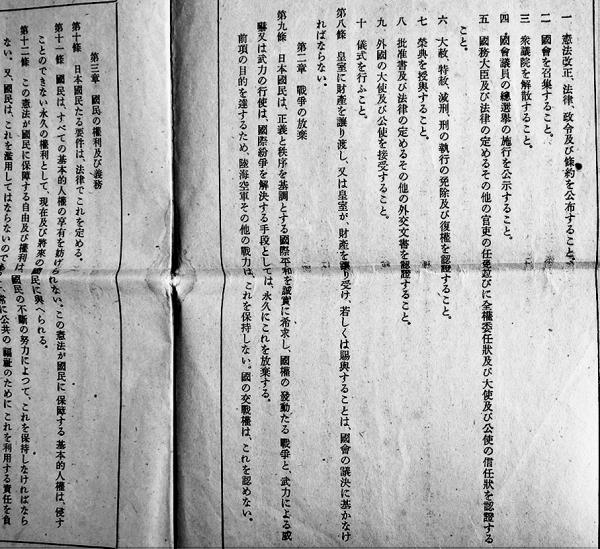 一 憲法改正、法律、政令及び條約を公布すること。
二 國會を召集すること。
三 衆議院を解散すること。
四 國會議員の總選擧の施行を公示すること。
五 國務大臣及び法律の定めるその他の官吏の任免竝びに全權委任狀及び大使及び公使の信任狀を認證する
こと。
六 大赦、特赦、減刑、刑の執行の免除及び復權を認證すること。
七 榮典を授與すること。
八 批准書及び法律の定めるその他の外交文書を認證すること。
九 外國の大使及び公使を接受すること。
十 儀式を行ふこと。
第八條 皇室に財產を讓り渡し、又は皇室が、財產を讓り受け、若しくは賜與することは、國會の議決に基かなけ
ればならない。
第二章 戰爭の放棄
第九條 日本國民は、正義と秩序を基調とする國際平和を誠實に希求し、國權の發動たる戰爭と、武力による威
嚇又は武力の行使は、國際紛爭を解決する手段としては、永久にこれを放棄する。
前項の目的を達するため、陸海空軍その他の戰力は、これを保持しない。國の交戰權は、これを認めない。
第三章 國民の權利及び義務
第十條 日本國民たる要件は、法律でこれを定める。
第十一條 國民は、すべての基本的人權の享有を妨げられない。この憲法が國民に保障する基本的人權は、侵す
ことのできない永久の權利として、現在及び將來の國民に與へられる。
第十二條 この憲法が國民に保障する自由及び權利は、國民の不斷の努力によつて、これを保持しなければなら
ない。又、國民は、これを濫用してはならないのであ常に公共の福祉のためにこれを利用する責任を負